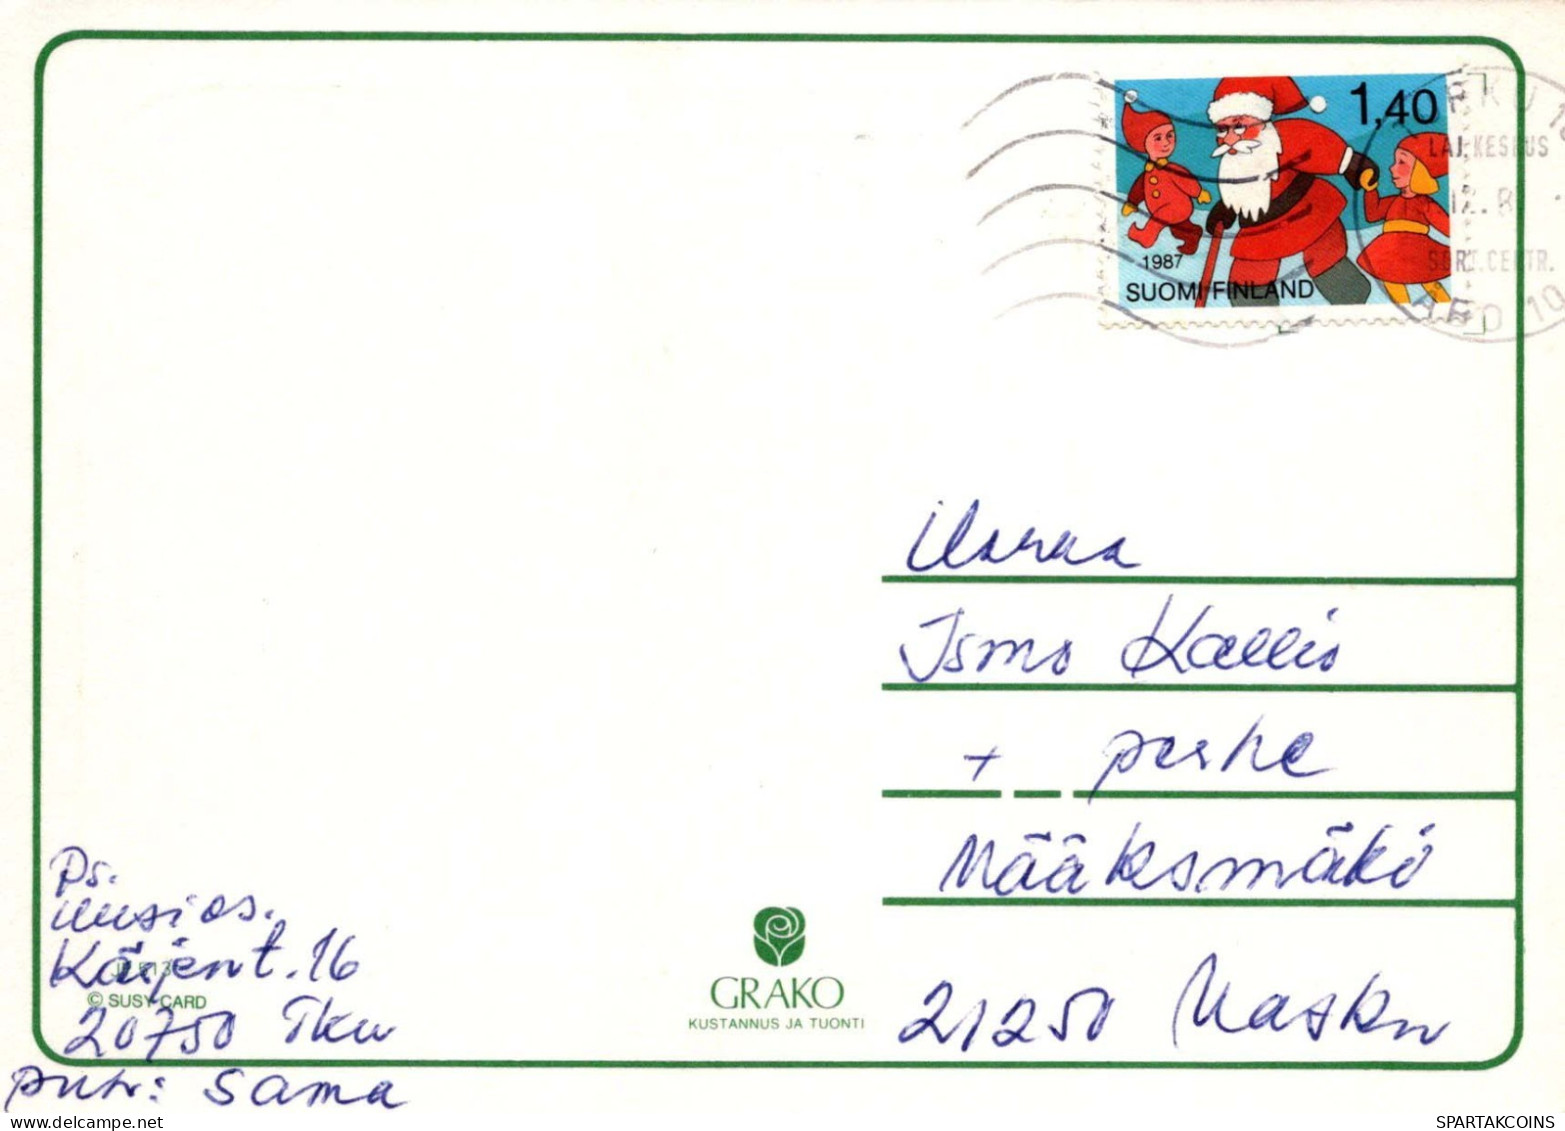 1,40
1987
SUOMI FINLAND
LAJ.KESKUS
12.8
SORT.CENTR.
Ismo Kallio
+ perhe
Määksmäki
21250 Masku
Ps.
uusi os.
Kärjent. 16
20750 Tku
puh: sama
© SUSY CARD
GRAKO
KUSTANNUS JA TUONTI
SPARTAKCOINS